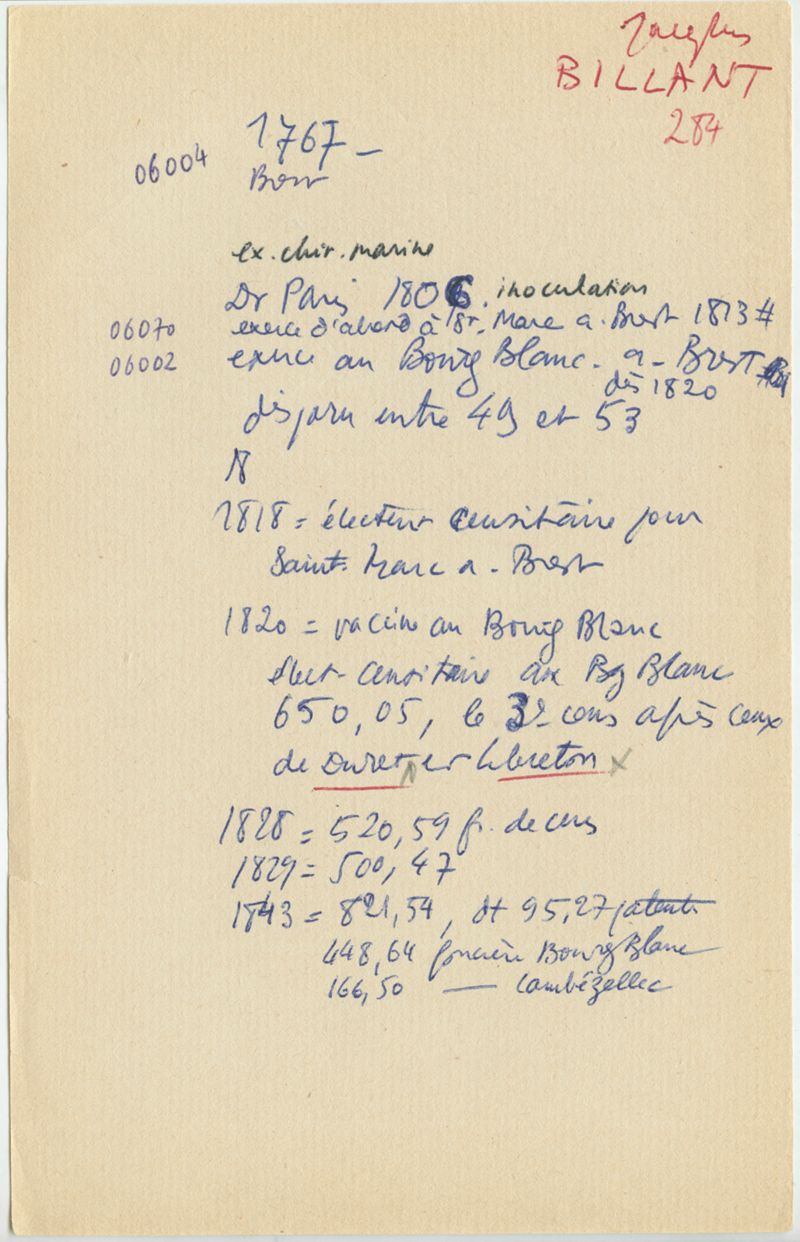 Jacques
BILLANT
284
1767 -
06004
ex. chir. marine
Dr Paris 1806. inoculation
06070 exerce d'abord à St. Marc a. Brest 1813 #
06002 exerce au Bourg Blanc. a - Brest
dès 1820
disparu entre 49 et 53
N
1818 = électeur censitaire pour
Saint-Marc a. Brest
1820 = vaccine au Bourg Blanc
élect. censitaire au Bg Blanc
650,05, le 3e cens après ceux
de Duret et Lebreton x
1828 = 520,59 fr. de cens
1829 = 500,47
1843 = 821,54, dt 95,27 patente
448,64 foncière Bourg Blanc
166,50 — Lambézellec